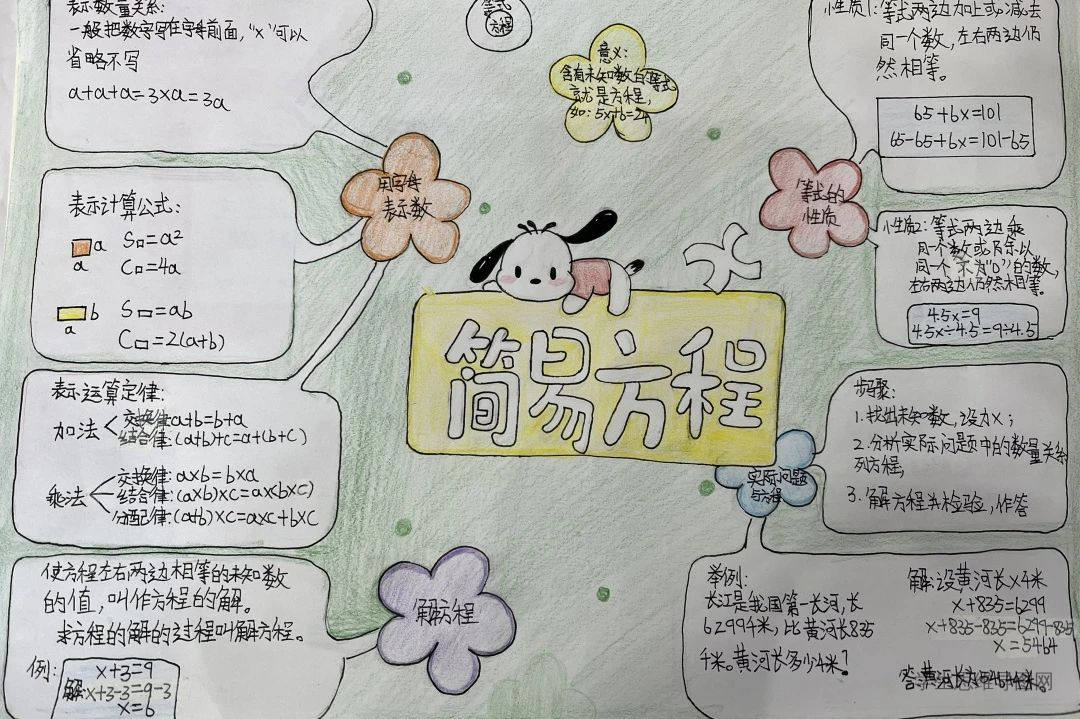 表示数量关系:
一般把数字写在字母前面,"×"可以
省略不写
a+a+a=3×a=3a
表示计算公式:
a
a
S□=a²
C□=4a
b
a
S▭=ab
C▭=2(a+b)
表示运算定律:
加法
交换律:a+b=b+a
结合律:(a+b)+c=a+(b+c)
乘法
交换律:a×b=b×a
结合律:(a×b)×c=a×(b×c)
分配律:(a+b)×c=a×c+b×c
使方程左右两边相等的未知数
的值,叫作方程的解。
求方程的解的过程叫解方程。
例:
x+3=9
解:x+3-3=9-3
x=6
用字母
表示数
等式
方程
意义:
含有未知数的等式
就是方程,
如:5x+6=24
简易方程
解方程
等式的
性质
实际问题
与方程
性质1:等式两边加上或减去
同一个数,左右两边仍
然相等。
65+6x=101
65-65+6x=101-65
性质2:等式两边乘
同一个数或除以
同一个不为"0"的数,
左右两边仍然相等。
4.5x=9
4.5x÷4.5=9÷4.5
步骤:
1.找出未知数,设为x;
2.分析实际问题中的数量关系
列方程;
3.解方程并检验,作答
举例:
长江是我国第一长河,长
6299千米,比黄河长835
千米。黄河长多少千米?
解:设黄河长x千米
x+835=6299
x+835-835=6299-835
x=5464
答:黄河长为5464千米。